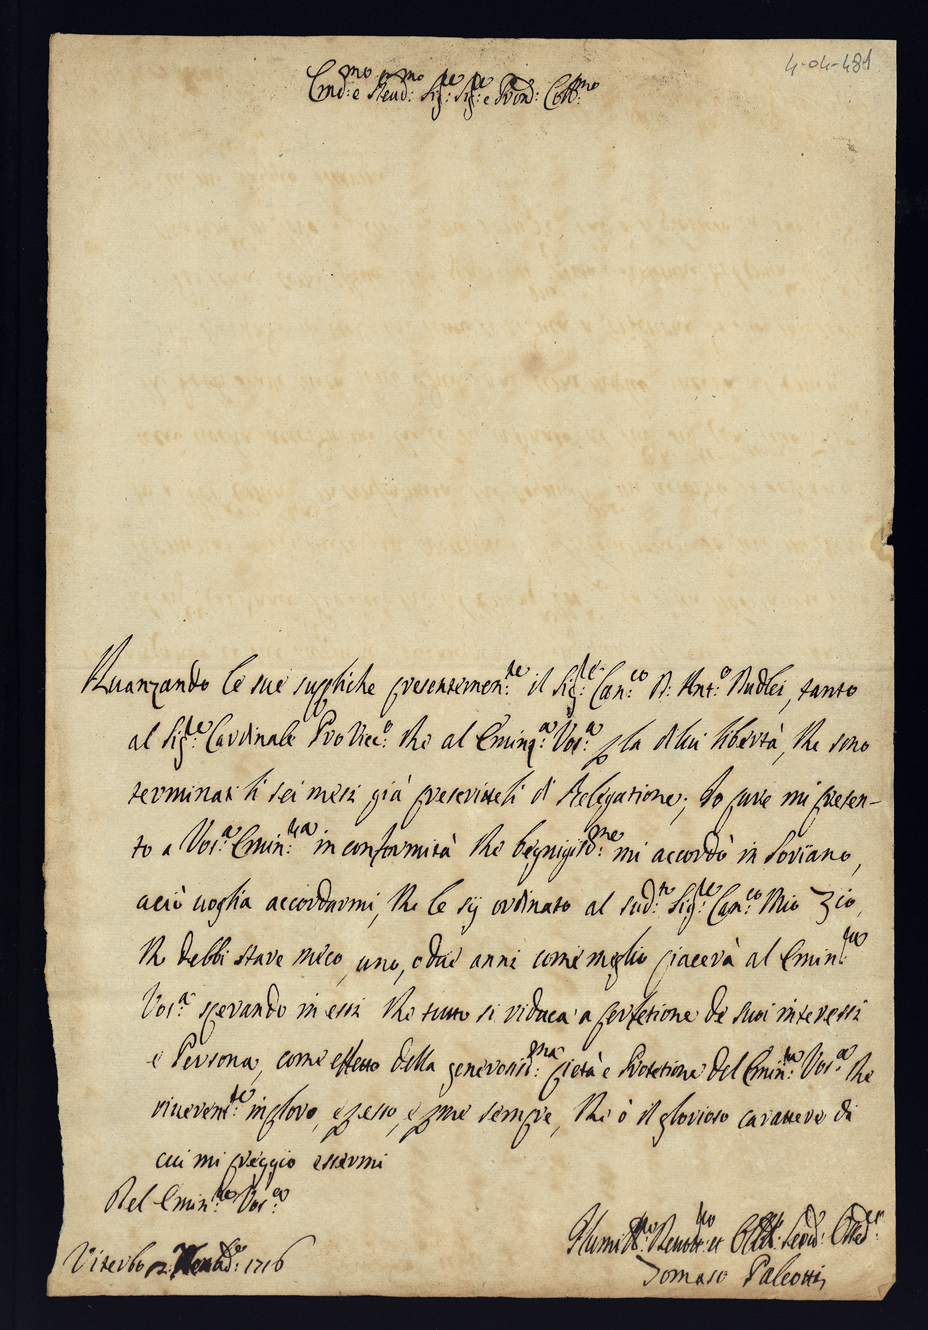 4-04-481
Em:mo e Reud:mo Sig:re Sig:re e Pron: Coll:mo
Auanzando le sue suppliche presentemen:te il Sig:re Can:co D: Ant:o Budlei, tanto
al Sig:re Cardinale ProVic:o che al Emin:a Vos:a p la di lui libertà, che sono
terminati li sei mesi già prescritteli di Relegatione; Io pure mi presen-
to a Vos:a Emin:za in conformità che begnigis:me mi accordò in Soriano,
aciò uoglia accordarmi, che le sij ordinato al sud:to Sig:re Can:co Mio Zio,
che debbi stare meco, uno, o due anni come meglio piacerà al Emin:za
Vos:a sperando in essi che tutto si riduca a perfetione de suoi interessi
e Persona, come effetto della generosiss:ma pietà e Protetione del Emin:za Vos:a che
riuerent:te imploro, e p esso, e p me sempre, che ò il glorioso carattere di
cui mi preggio essermi
Del Emin:za Vos:a
Viterbo 1716
Humil:mo Deuot:mo et Obl:mo Seru:
Tomaso Paleotti